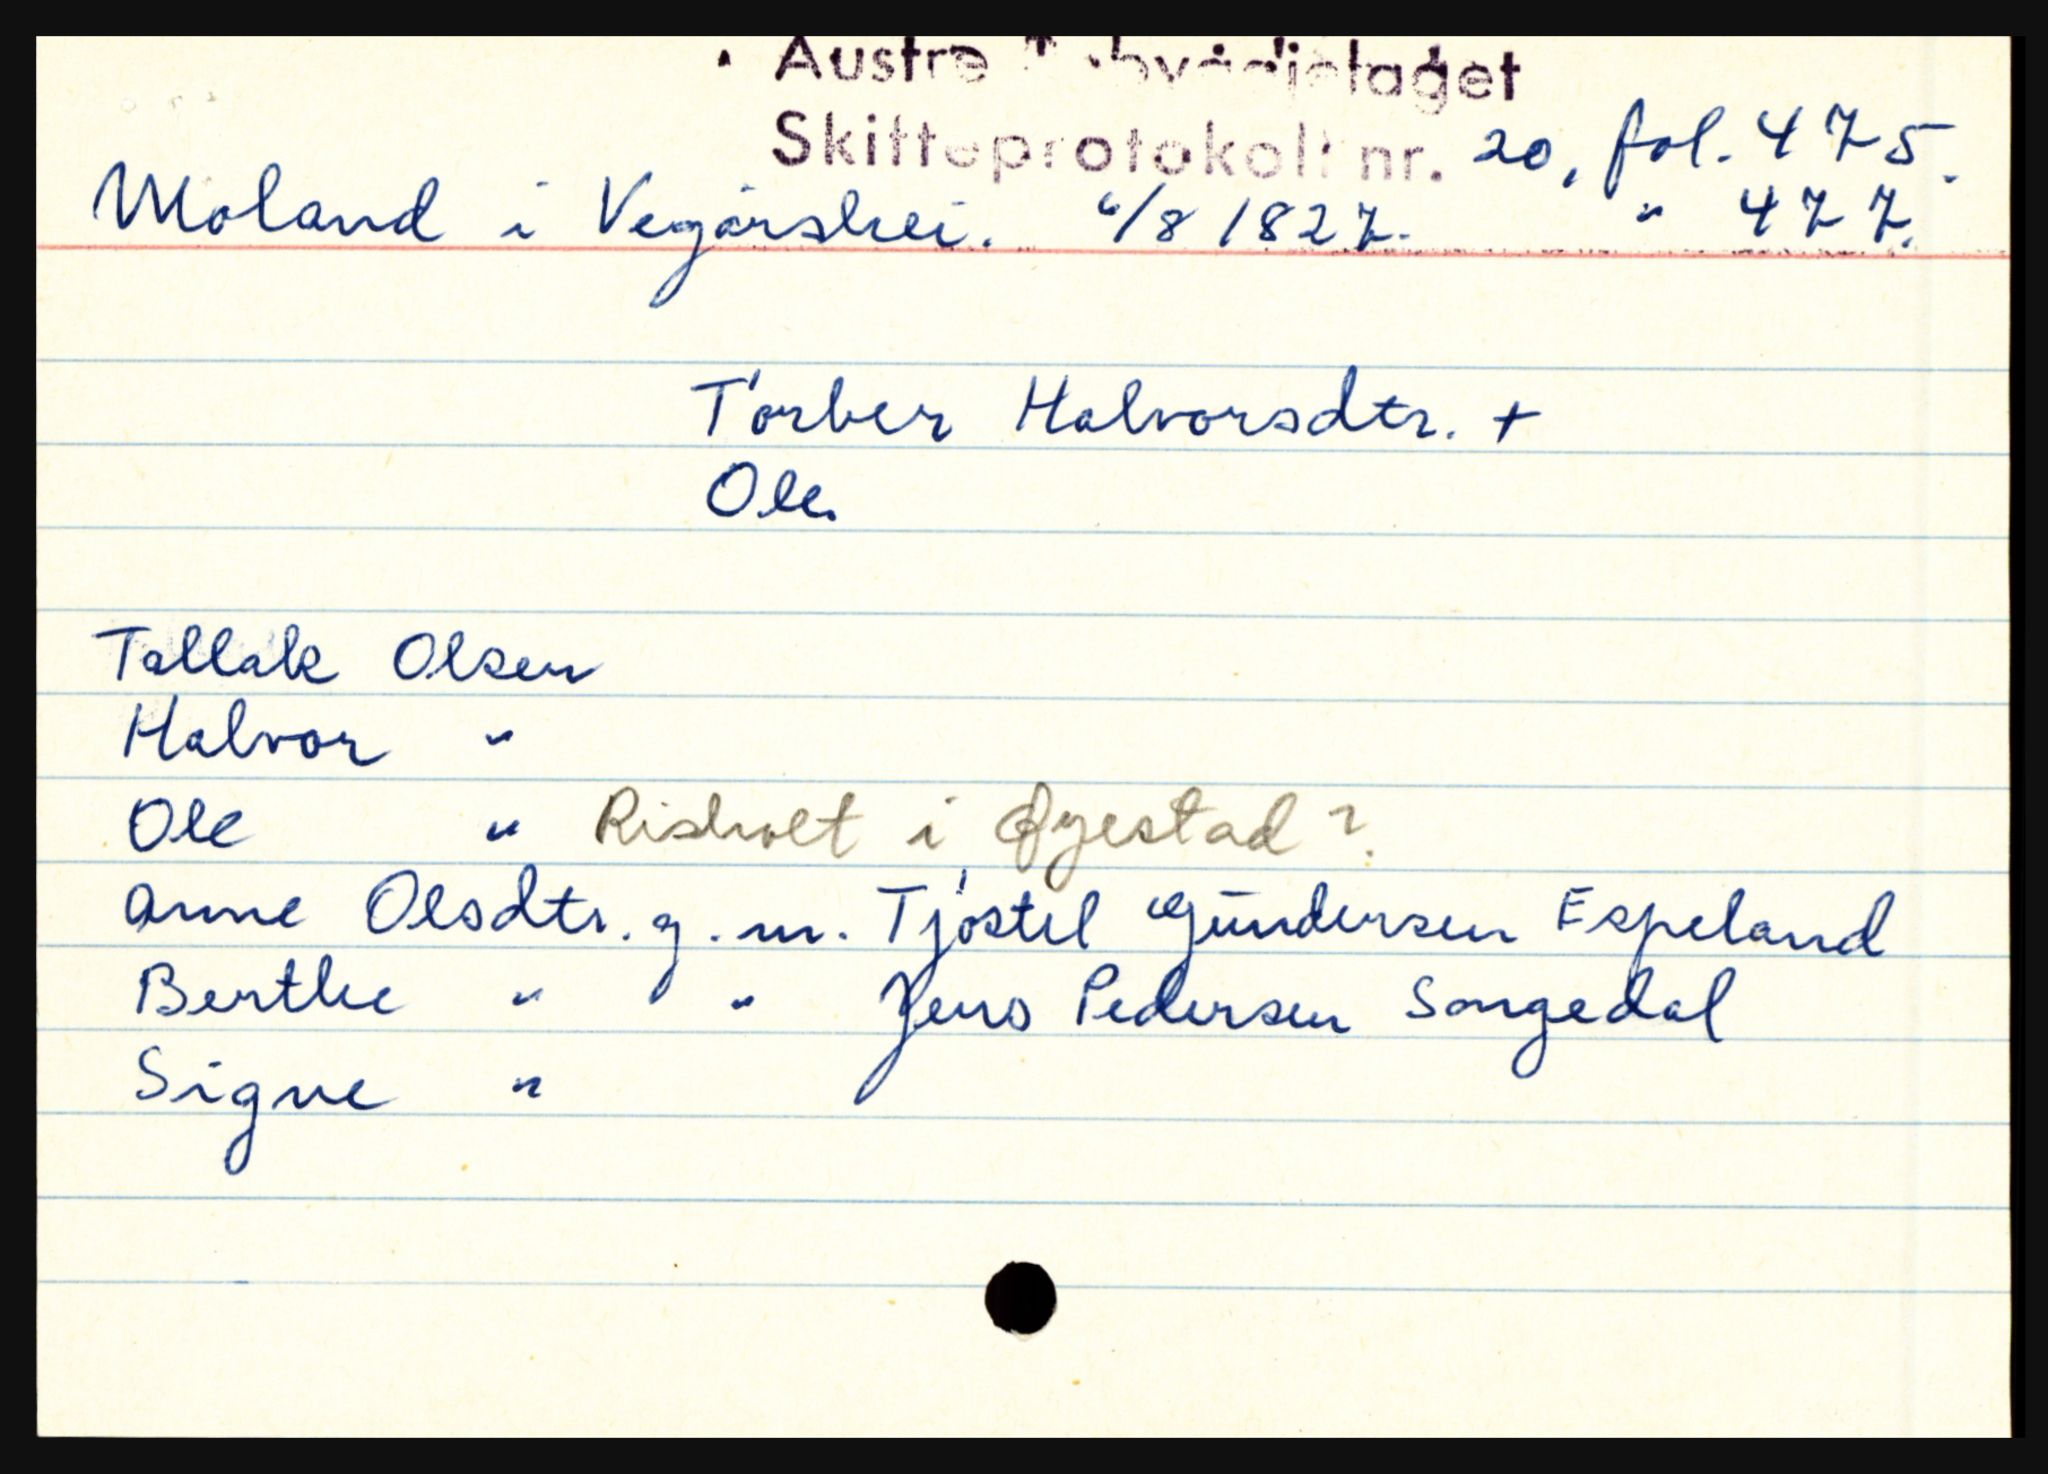 Austre
Skifteprotokoll nr. 20, fol. 475.
Moland i Vegårshei. 6/8 1827. " 477.
Tarber Halvorsdtr. +
Ole.
Tallak Olsen
Halvor "
Ole " Risholt i Øyestad?
Anne Olsdtr. g.m. Tjøstel Gundersen Espeland
Berthe " " Jens Pedersen Songedal
Signe "